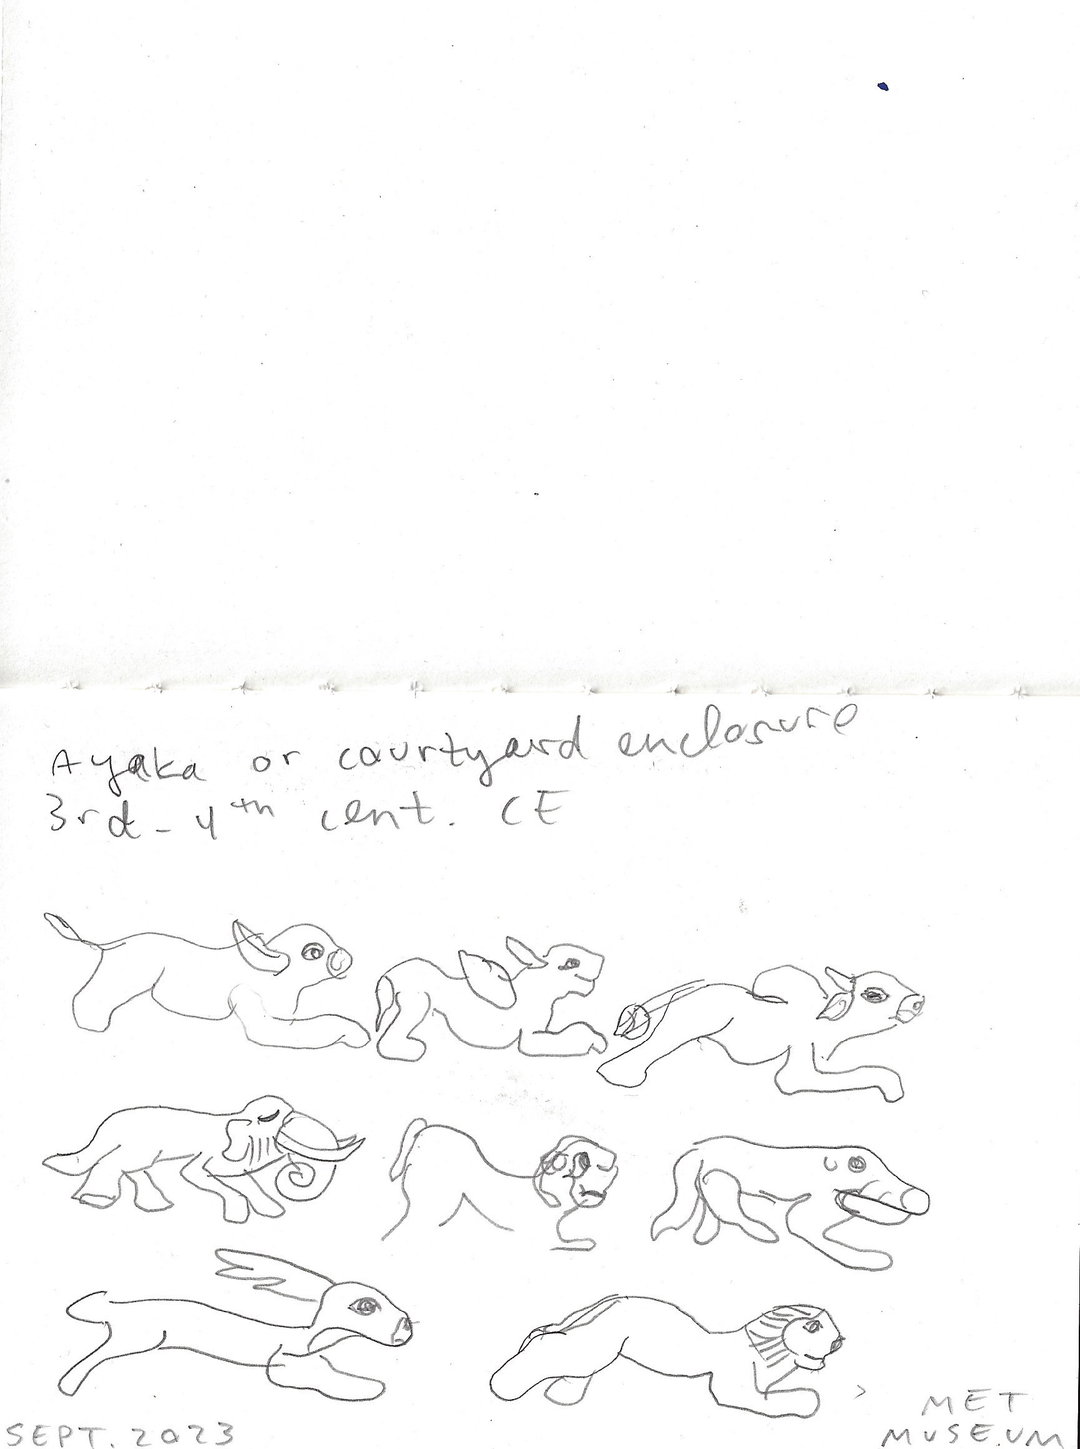 Ayaka or courtyard enclosure
3rd - 4th cent. CE
SEPT. 2023
MET
MUSEUM